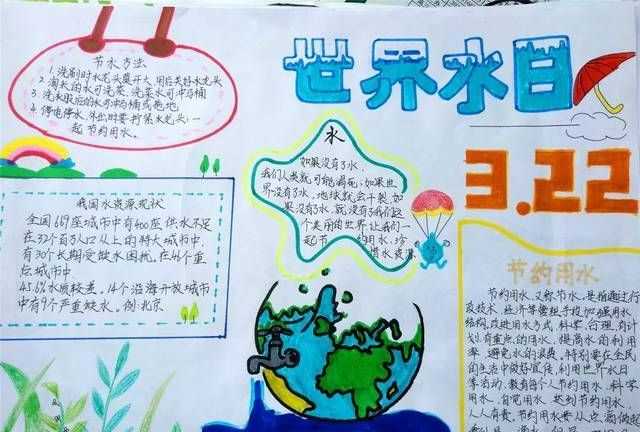 世界水日
3.22
节水方法
1. 洗刷时水龙头莫开大,用后关好水龙头
2. 淘米的水可洗菜,洗菜水可冲马桶
3. 洗衣服后的水可冲马桶或拖地
4. 停电停水,外出时要拧紧水龙头,一
起节约用水。
我国水资源现状
全国669座城市中有400座供水不足
在32个百万人口以上的特大城市中,
有30个长期受缺水困扰,在46个重
点城市中
45.6%水质较差,14个沿海开放城市
中有9个严重缺水。例:北京
水
如果没有了水,
我们人类就可能渴死;如果世
界没有了水,地球就会干裂,如
果没有了水,就没有了我们这
个美丽的世界,让我们一
起节约用水,珍
惜水资源
节约用水
节约用水,又称节水,是指通过行
政技术,经济等管理手段加强用水
结构,改进用水方式,科学,合理,有计
划,有重点的用水,提高水的利用
率,避免水的浪费,特别要在全民
的生活中做好宣传,利用世界水日
等活动,教育每个人节约用水,科学
用水,自觉用水,达到节约用水,
人人有责。节约用水要从点滴做起